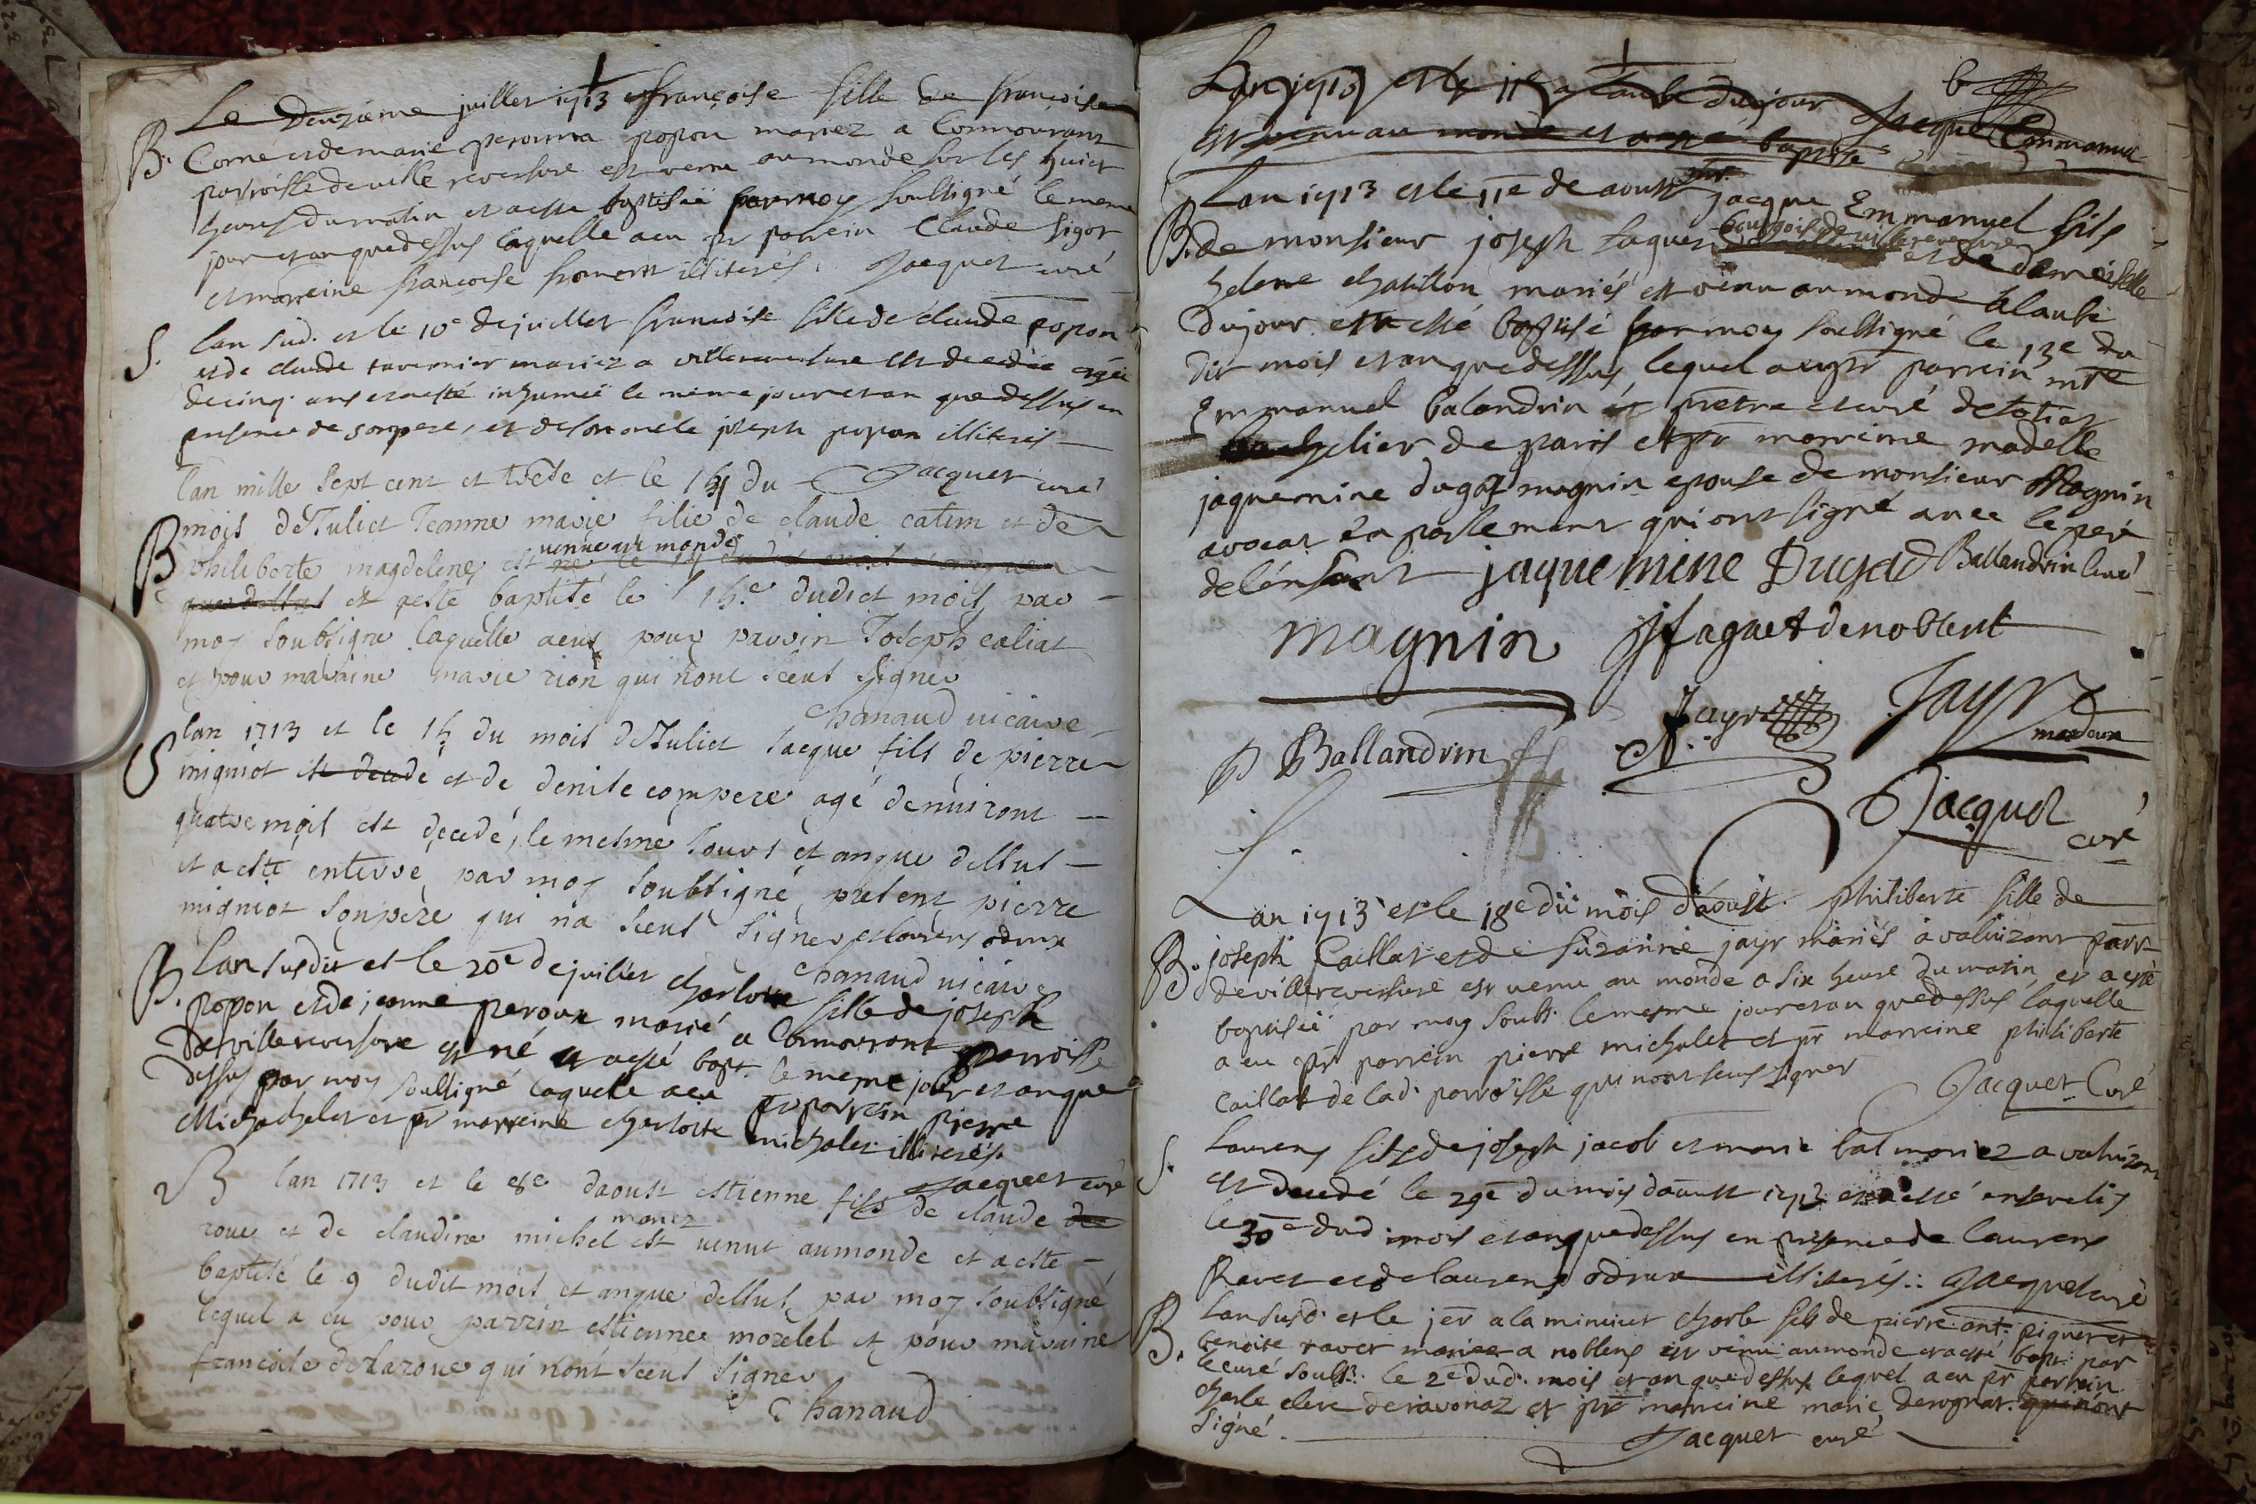 Le Deuzieme juillet 1713 françoise fille de françois
B. Corné et de marie perouna popon mariez a Conmourant
parroisse de ville reversure est venu au monde sur les huict
heures du matin et a esté baptisée par moy soubsigné le meme
jour et an que dessus laquelle a eu pr parrein Claude sigot
et marreine françoise froment illiterés. Jacquet curé
S. lan sud. et le 10e de juillet francoise fille de claude popon
et de claude tavernier mariez a villereversure est decedée agée
de cinq ans et a esté inhumée le meme jour et an que dessus en
presence de son pere, et de son oncle joseph popon illiterés
Jacquet curé
lan mille sept cent et trede et le 14 du
B mois de Juliet Jeanne marie filie de claude catim et de
philiberte magdelene est venue au monde
que dessus et a esté baptisé le 15e dudict mois par
moy soubsigne laquelle a eus pour parrin Joseph caliat
et pour maraine marie rion qui nont sceut signer
Chanaud vicaire
S lan 1713 et le 15 du mois de Juliet Jacque fils de pierre
migniot est decedé et de denise compere agé denuiront
quatre mois est decedé, le mesme jours et an que dessus
et a esté enterré par moy soubsigné present pierre
migniot son pere qui na sceut signer et laurens odrux
Chanaud vicaire
B. Lan susdit et le 20e de juillet charlotte fille de joseph
popon et de jeanne peroux marié a Conmourant parroisse
de villereversure est né et a esté bapt. le meme jour et an que
dessus par moy soubsigné laquelle a eu pr parrein pierre
Michachelet et pr marreine charlotte michalet illiterés.
Jacquet curé
B lan 1713 et le 8e daoust estienne fils de claude de
roue et de claudine michel mariez est venut au monde et a esté
baptisé le 9 dudit mois et an que dessus par moy soubsigné
lequel a eu pour parrin estienne morelel et pour maraine
francoise de laroue qui nont sceut signer
Chanaud
Lan 1713 et le 11e a laube du jour Jacque Emmanuel
est venu au monde et a esté baptisé
Lan 1713 et le 11e de aoust jacque Emmanuel fils
B. de monsieur joseph faguet bourgois de villereversure et de demoiselle
helene chatillon mariés est venu au monde a laube
du jour et a esté baptisé par moy soubsigné le 13e du
dit mois et an que dessus, lequel a eu pr parrein mre
Emmanuel balandrin prêtre et curé de
bachelier de paris et pr marreine madelle
jaquemine dugas magnin epouse de monsieur Magnin
avocat en parlement qui ont signé avec le pere
de lénfant jaquemine Dugad Ballandrin curé
magnin J faguet denoblent
P Ballandrin Jayr Jayr
Jacquet curé
Lan 1713 et le 18e du mois d'aoust. philiberte fille de
B. joseph Caillat et de suzanne jayr mariés a valuizant parr
de villereversure est venu au monde a six heure du matin, et a esté
baptisée par moy soubs. le mesme jour et an que dessus laquelle
a eu pr parrein pierre michalet et pr marreine philiberte
caillat de lad. parroisse qui nont sceus signer
Jacquet Curé
S. Laurens fils de joseph jacob et marie bal mariez a valuizant
est decedé le 29e du mois daoust 1713 et a esté enseveli
le 30e dud. mois et an que dessus en presence de laurens
Ravet et de laurens odrux illiterés. Jacquet curé
B. Lan susd. et le jer a la minuict charle fils de pierre ant. piquet et
benoite ravet mariez a noblens est venu au monde et a esté bapt. par
le curé soubs. le 2e dud. mois et an que dessus lequel a eu pr parrein
charle clerc de ravonaz et pr marreine marie derognat. qui nont
signé.
Jacquet curé